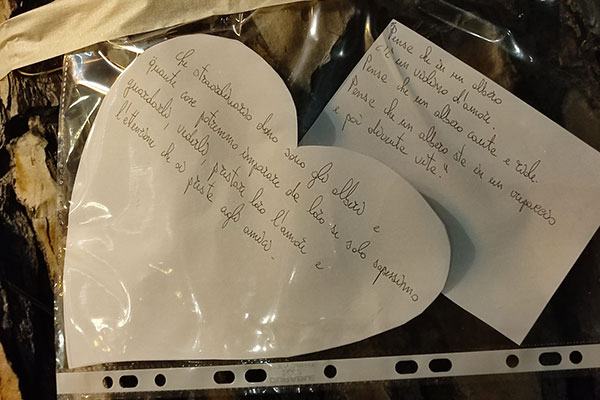 Che straordinario dono sono gli alberi e
quante cose potremmo imparare da loro se solo sapessimo
guardarli, vederli, prestar loro l'amore e
l'attenzione che si presta agli amici.
Pensa che in un albero
c'è un violino d'amore.
Pensa che un albero canta e ride.
Pensa che un albero sta in un crepaccio
e poi diventa vita."